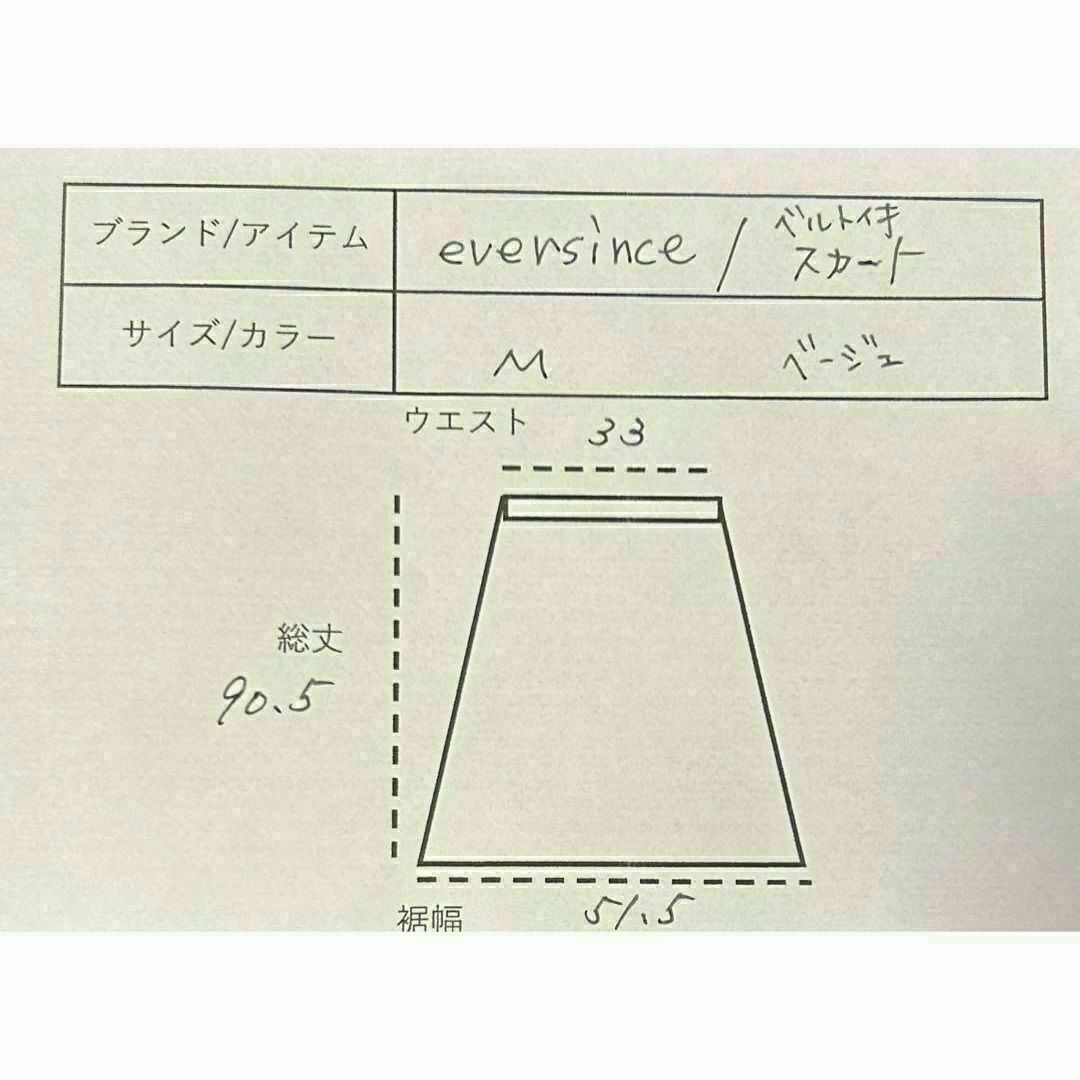 ブランド/アイテム eversince / ベルト付き
スカート
サイズ/カラー M ベージュ
ウエスト 33
総丈
90.5
裾幅 51.5